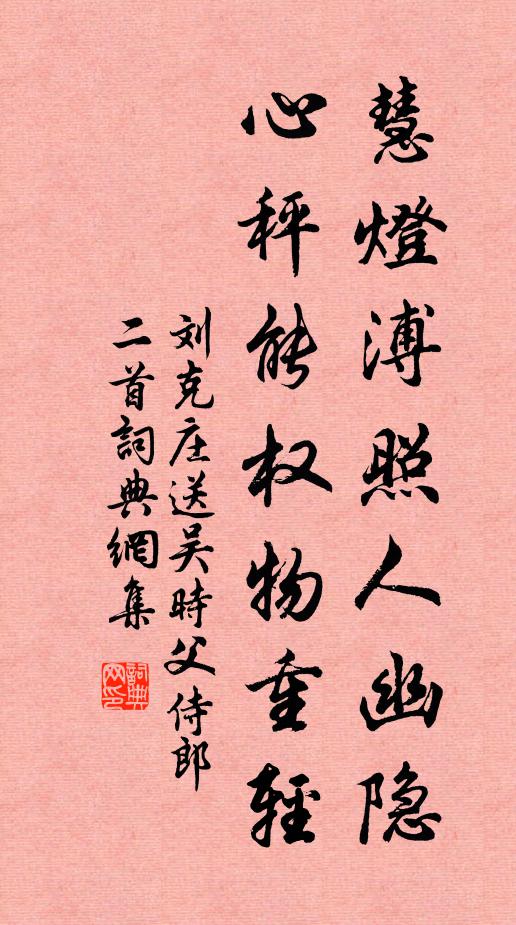 慧燈溥照人幽隐
心秤能权物重輕
刘克庄送吴時父侍郎
二首詞典網集
詞典網印